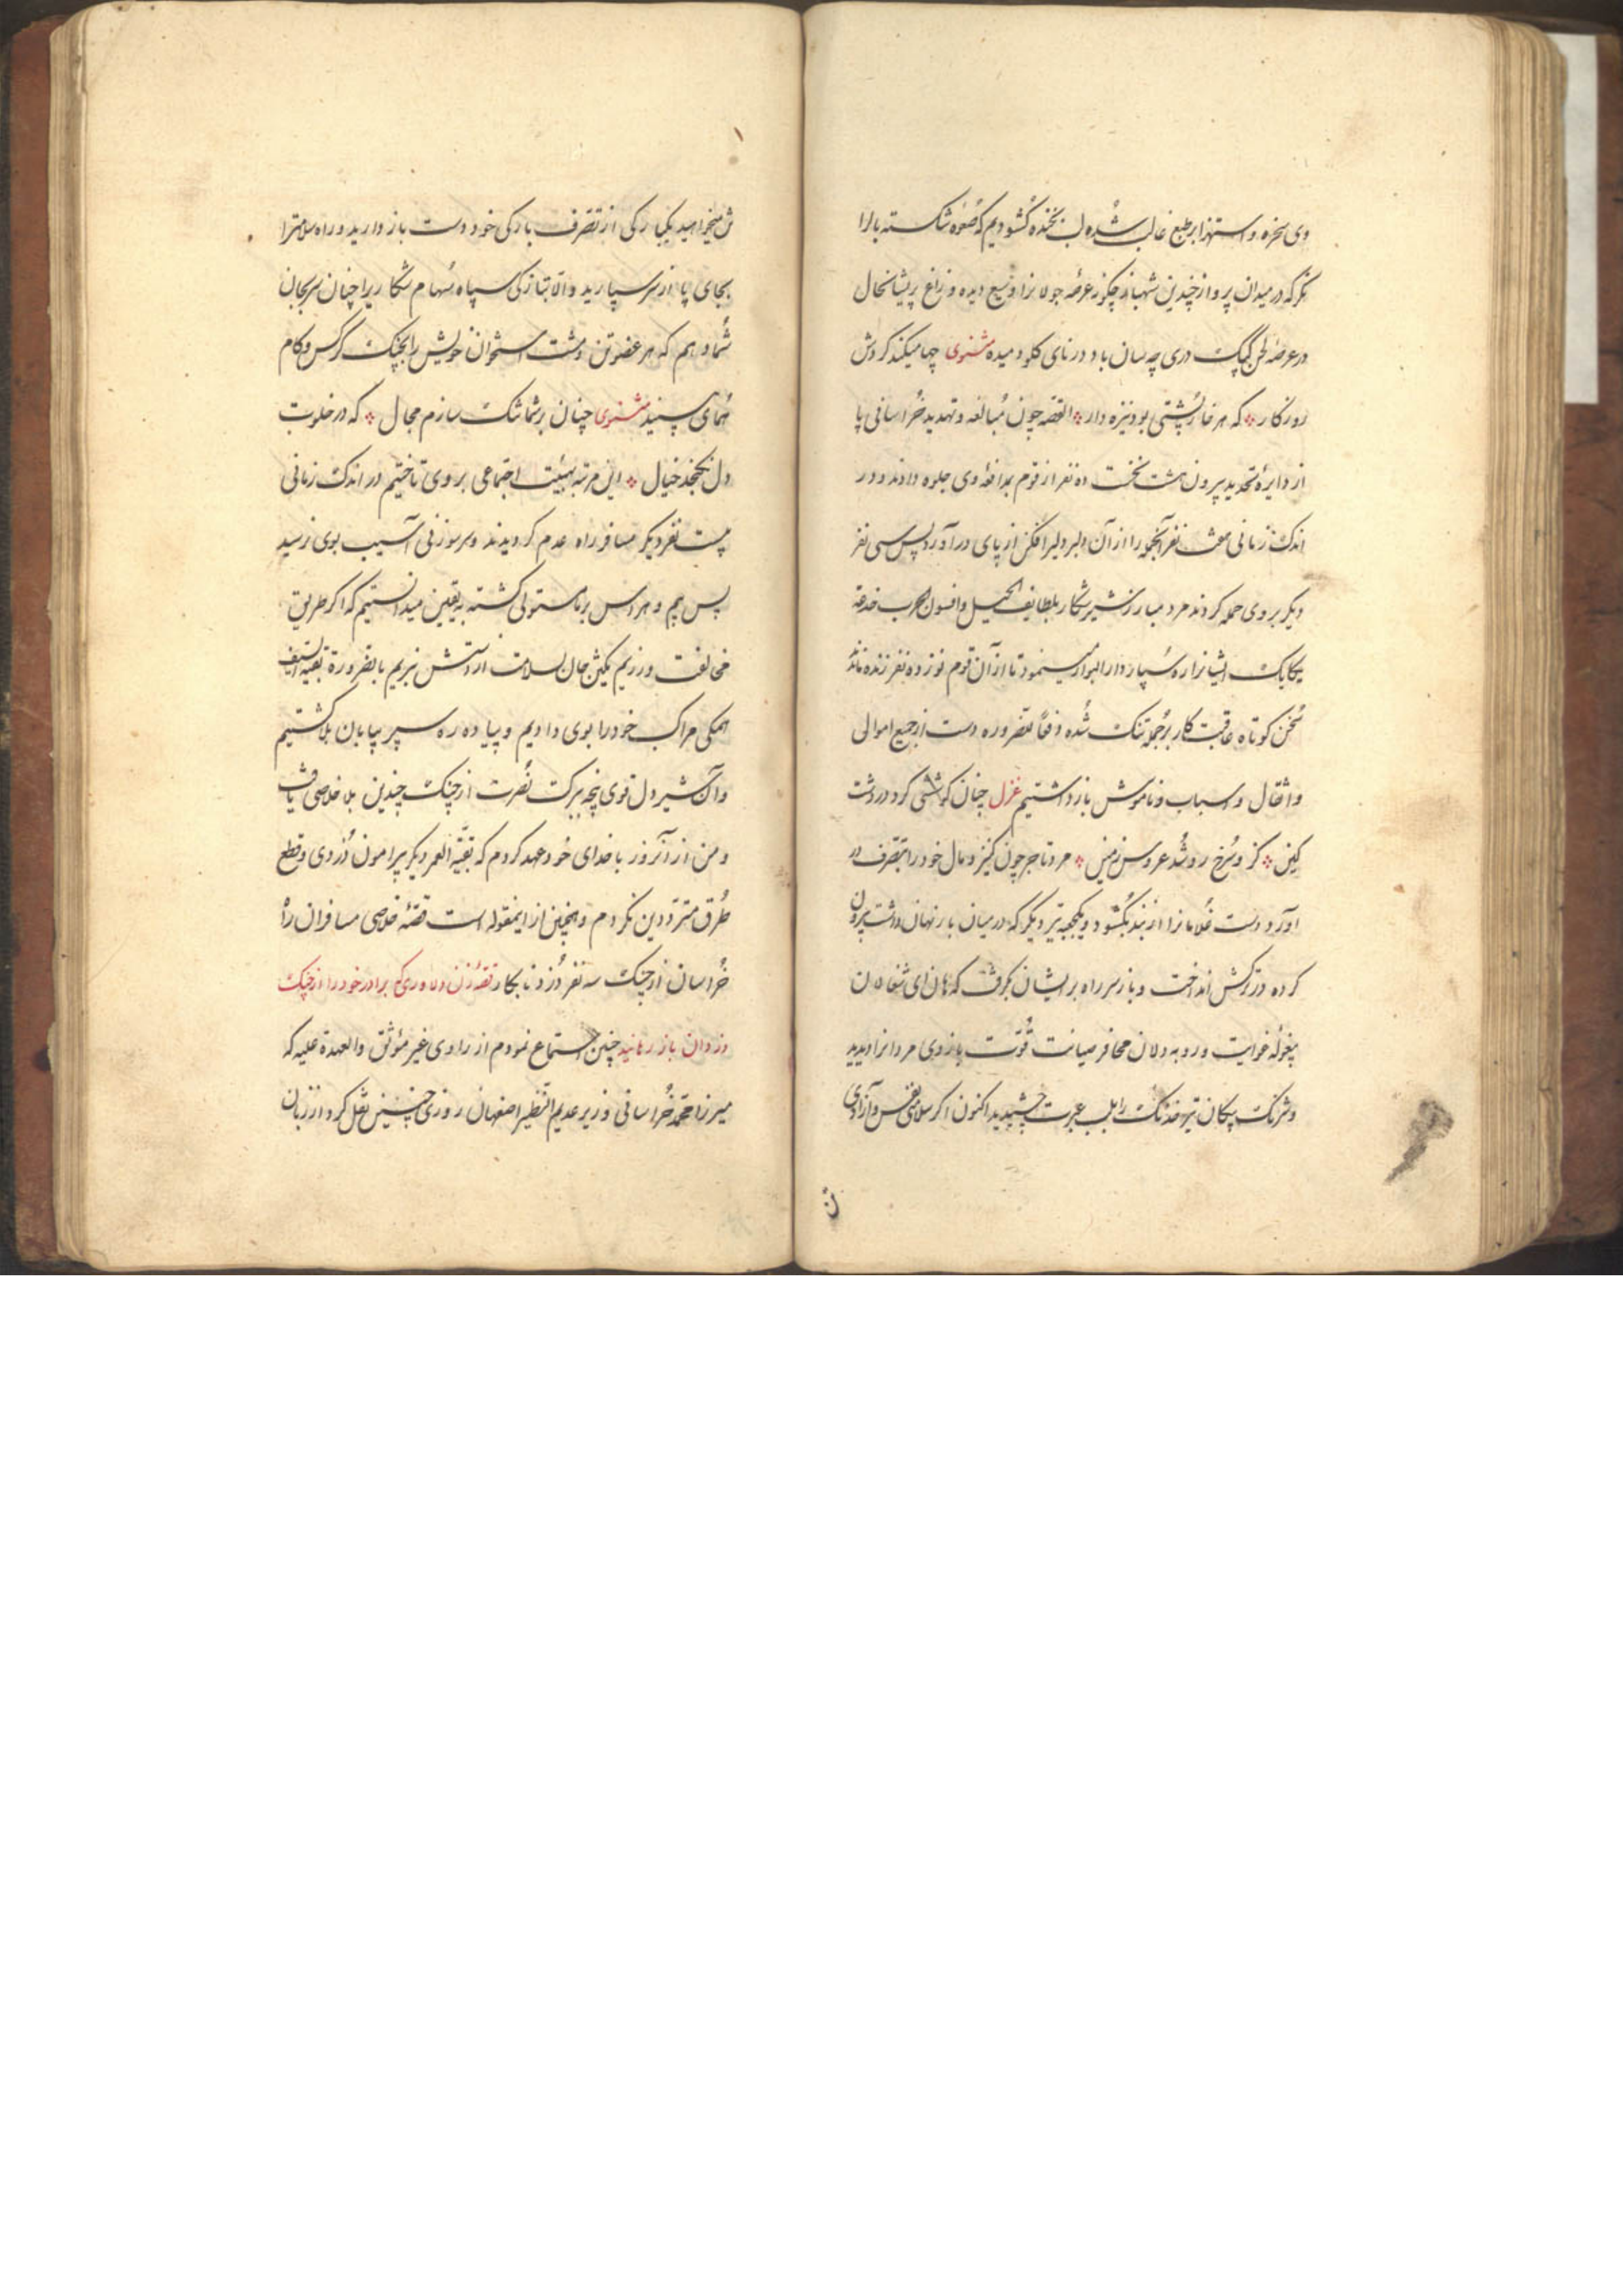 وی سخره و استهزا بر طبع غالب شده لب بخنده کشودیم که صعوه شکسته بالرا
نکر که در میدان پرواز چندین شهباز چکونه عرصه جولانرا وسیع دیده و زاغ پریشانحال
در عرصه لحن کبک دری چه سان باد در نای کلو دمیده مثنوی چها میکند کردش
روزکار که هر خارپشتی بود نیزه دار القصه چون مبالغه و تهدید خراسانی پا
از دایره تحدید بیرون هشت نخست ده نفر از قوم بمدافعه وی جلوه دادند و در
اندک زمانی نفر آنجمع را از آن دلیر دلیرافکن از پای درآورد پس سی نفر
دیکر بر وی حمله کردند مرد مبارز شیر شکار بلطایف الحیل و افسون الحرب خدعة
یکایک ایشانرا ره سپار دار البوار مینمود تا از آن قوم نوزده نفر زنده ماند
سخن کوتاه عاقبت کار بر جمله تنک شده دست از جمیع اموال
و اثقال و اسباب و ناموس باز داشتیم غزل چنان کوششی کرد در دشت
کین کزو سرخ رو شد عروس زمین مرد تاجر چون کنیز و مال خود را بتصرف در
آورد دست غلامانرا از بند بکشود و یکجعبه تیر دیکر که در میان بار نهان داشت بیرون
کرده در ترکش انداخت و باز سر راه بر ایشان بکرفت که هان ای شغالان
بیغوله غوایت و روبه دلان صیانت قوت بازوی مردانرا دیدید
و شرنک پیکان تیر خدنک را بلب عبرت چشیدید اکنون اکر سلامتی نفس و آزادی
تن
تن میخواهید یکبارکی از تصرف بارکی خود دست باز دارید و راه سلامترا
بجای پا از سر سپارید والا بتازکی سپاه سهام شکاریرا چنان سر بجان
شما دهم که هر عضو تن و مشت استخوان خویش را بچنک کرکس و کام
همای بینید مثنوی چنان بر شما تنک سازم مجال که در خلوت
دل نکنجد خیال این مرتبه بهیئت اجتماعی بر وی تاختیم در اندک زمانی
بیست نفر دیکر مسافر راه عدم کردیدند و سر سوزنی آسیب بوی نرسید
پس بیم و هراس بر ما مستولی کشته به یقین میدانستیم که اکر طریق
مخالفت ورزیم یکتن جان بسلامت از دستش نبریم بالضرورة بقیة السیف
همکی مراکب خود را بوی دادیم و پیاده ره سپر بیابان بلا کشتیم
و آن شیر دل قوی پنجه ببرکت نصرت از چنک چندین بلا خلاصی یافت
و من از آنروز با خدای خود عهد کردم که بقیة العمر دیکر پیرامون دزدی و قطع
طرق مترددین نکردم و همچنین از اینمقوله است قصه خلاصی مسافران راه
خراسان از چنک سه نفر دزد نابکار قصه زن دلاوری که برادر خود را از چنک
دزدان باز رهانید چنین استماع نمودم از راوی غیر مؤثق والعهدة علیه که
میرزا محمد خراسانی وزیر عدیم النظیر اصفهان روزی چنین نقل کرد از زبان